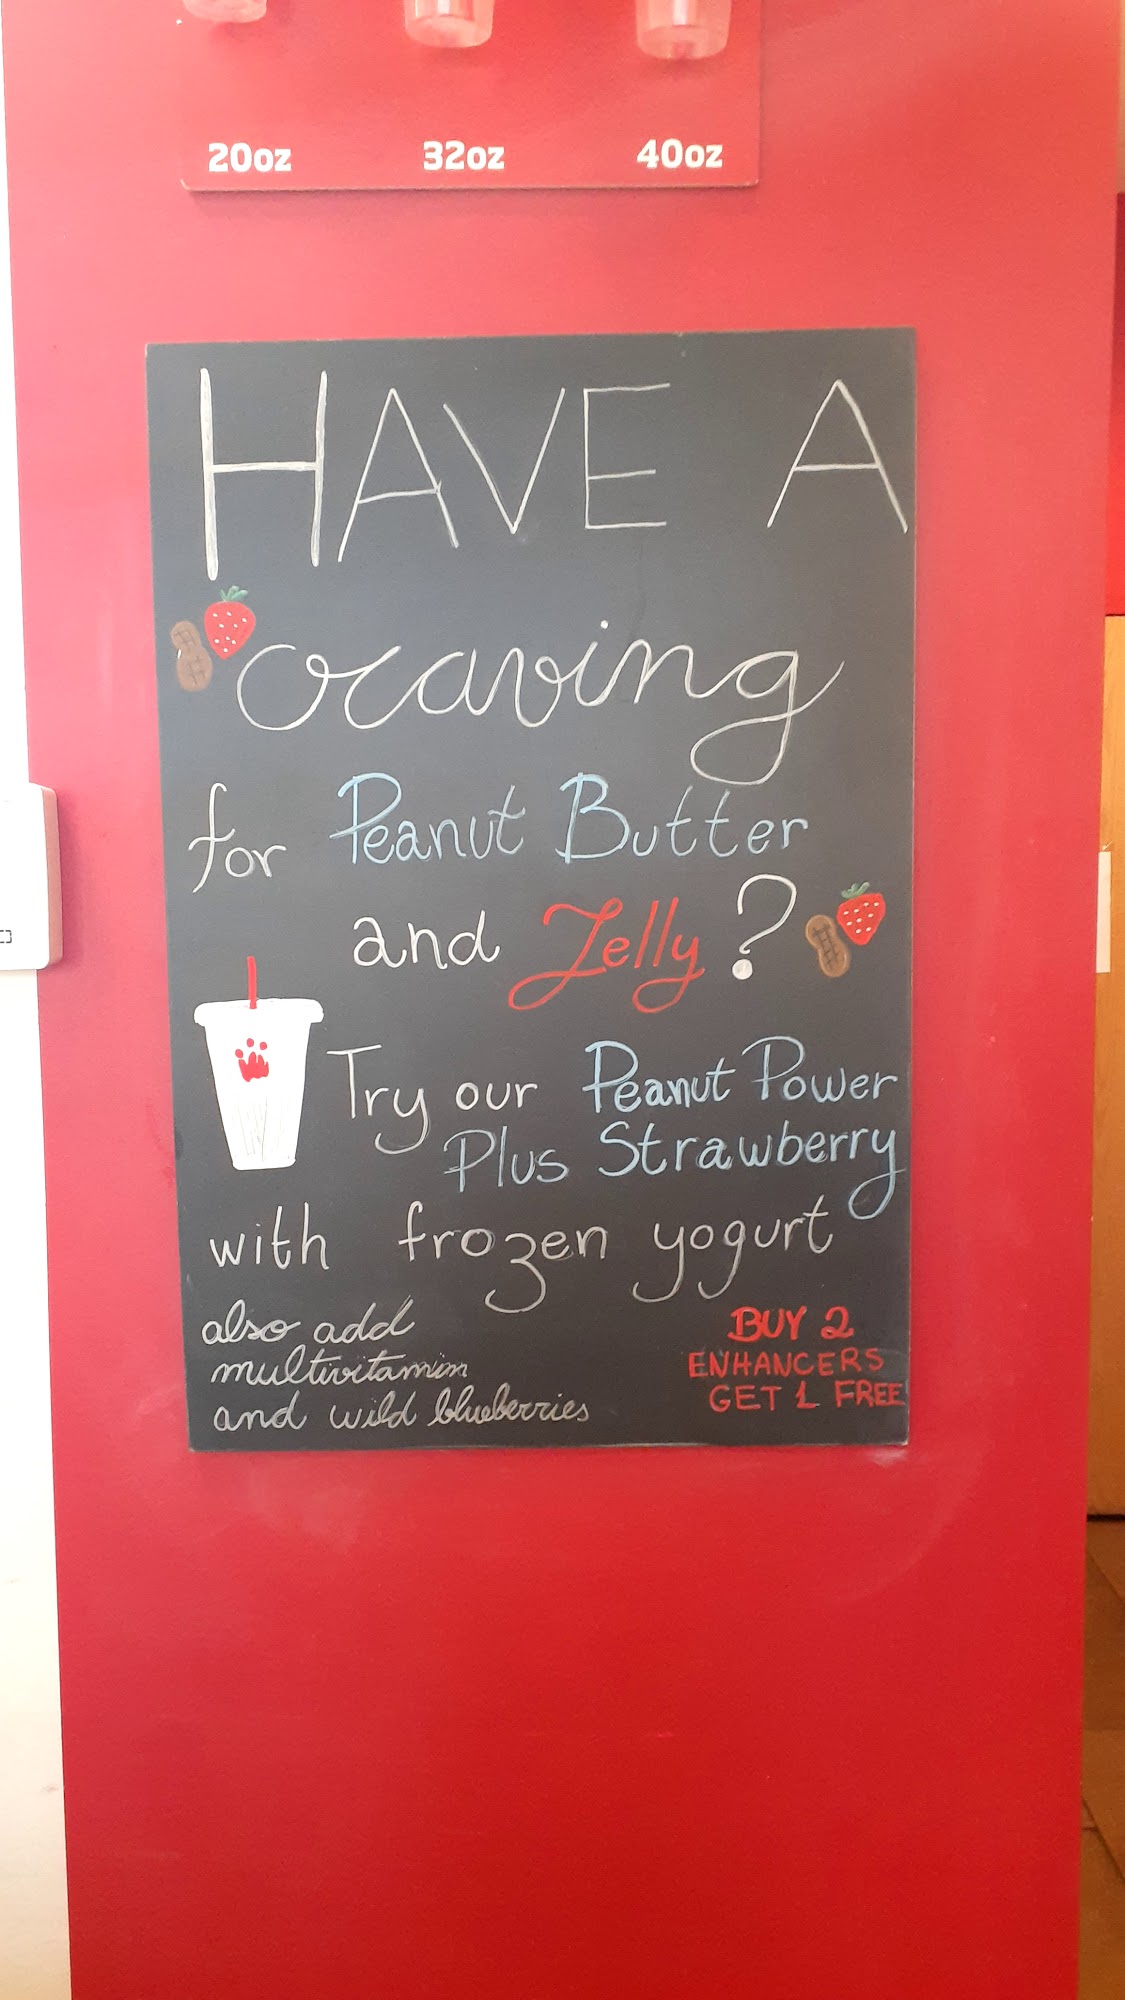 20oz 32oz 40oz
HAVE A
craving
for Peanut Butter
and Jelly?
Try our Peanut Power
Plus Strawberry
with frozen yogurt
also add
multivitamin
and wild blueberries
BUY 2
ENHANCERS
GET 1 FREE